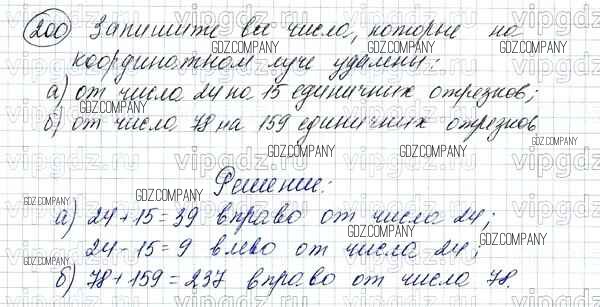 200 Запишите все числа, которые на
координатном луче удалены:
а) от числа 24 на 15 единичных отрезков;
б) от числа 78 на 159 единичных отрезков
Решение:
а) 24 + 15 = 39 вправо от числа 24;
24 - 15 = 9 влево от числа 24;
б) 78 + 159 = 237 вправо от числа 78.
GDZ.COMPANY
vipgdz.ru